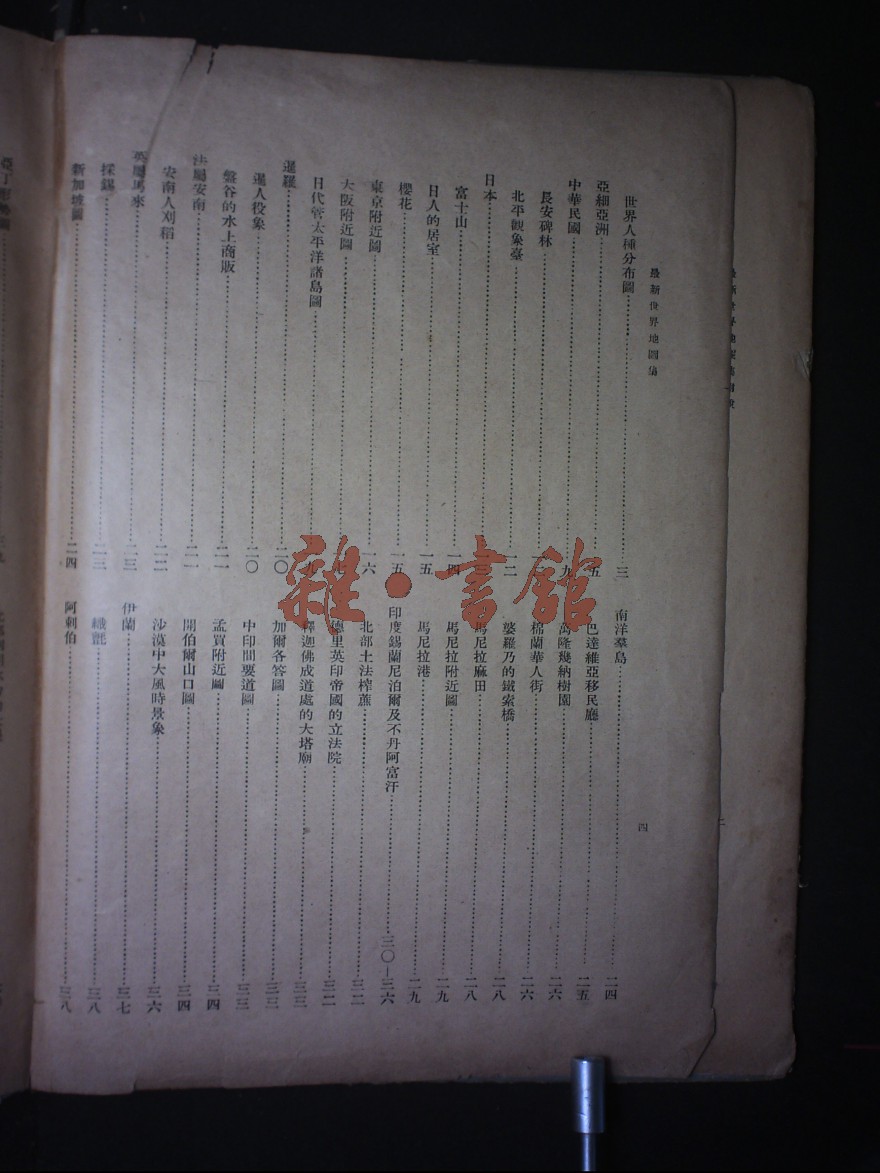 最新世界地圖集
四
世界人種分布圖……三
亞細亞洲……五
中華民國……九
長安碑林
北平觀象臺……一二
日本……一三
富士山……一四
日人的居室……一五
櫻花……一五
東京附近圖……一六
大阪附近圖
日代管太平洋諸島圖……一九
暹羅……二〇
暹人役象……二〇
盤谷的水上商販……二一
法屬安南……二一
安南人刈稻……二二
英屬馬來……二三
採錫……二三
新加坡圖……二四
南洋羣島……二四
巴達維亞移民廳……二五
萬隆幾納樹園……二六
棉蘭華人街……二六
婆羅乃的鐵索橋……二八
馬尼拉麻田……二八
馬尼拉附近圖……二九
馬尼拉港……二九
印度錫蘭尼泊爾及不丹阿富汗……三〇—三六
北部土法榨蔗……三二
德里英印帝國的立法院……三二
釋迦佛成道處的大塔廟……三三
加爾各答圖……三三
中印間要道圖……三三
孟買附近圖……三四
開伯爾山口圖……三四
沙漠中大風時景象……三六
伊蘭……三七
織氈……三八
阿剌伯……三八
雜·書館